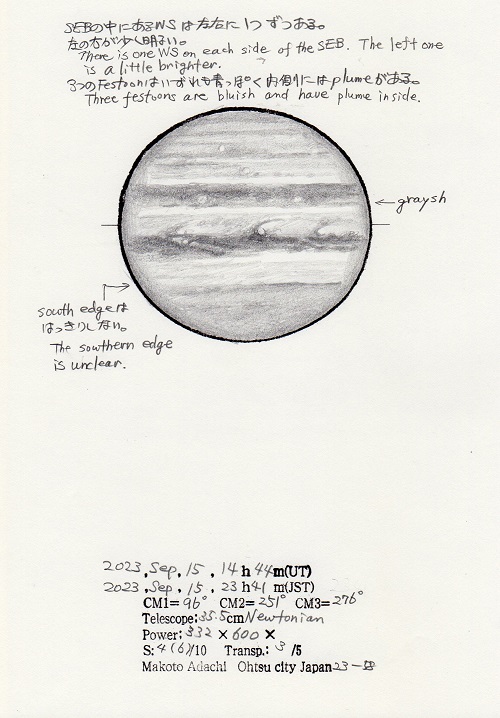 SEBの中にあるWSは左右に1つずつある。
左の方が少く明るい。
There is one WS on each side of the SEB. The left one
is a little brighter.
3つのFestoonはいずれも青っぽく内側にはplumeがある。
Three festoons are bluish and have plume inside.
graysh
south edgeは
はっきりしない。
The southern edge
is unclear.
2023, Sep, 15, 14h 44m(UT)
2023, Sep, 15, 23h41 m(JST)
CM1=96° CM2=251° CM3=276°
Telescope:35.5cm Newtonian
Power:332×600×
S:4(6)/10 Transp.:3/5
Makoto Adachi Ohtsu city Japan 23-